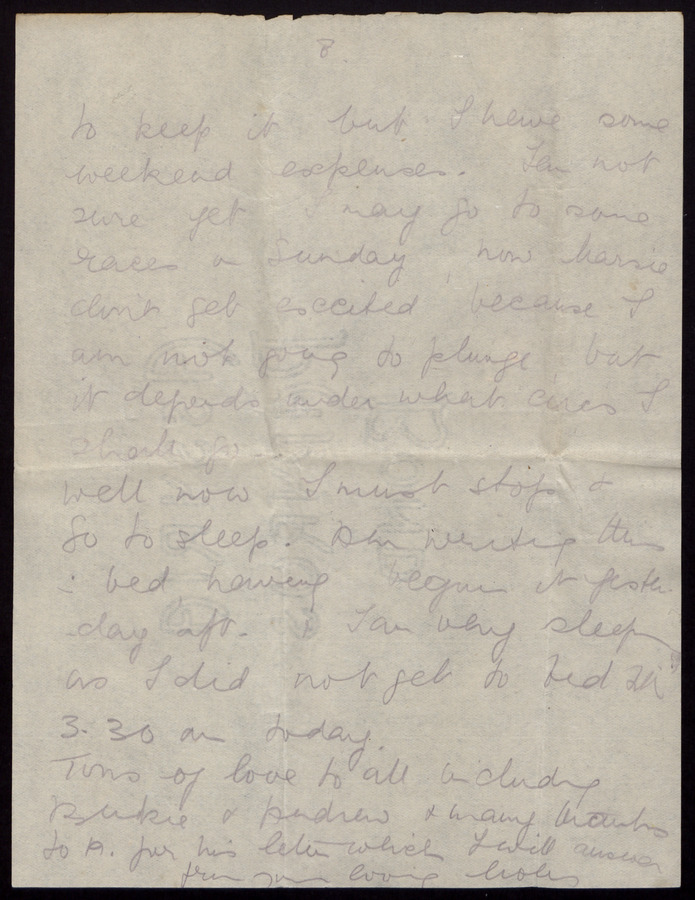 8.
to keep it but I have some
weekend expenses. I am not
sure yet I may go to some
races on Sunday, now
don't get excited because I
am not going to plunge but
it depends under what circs I
shall go.
well now I must stop &
go to sleep. Am writing this
in bed having begun it yester-
-day aft. & I am very sleepy
as I did not get to bed till
3.30 am today.
Tons of love to all including
& Andrew & many thanks
to A. for his letter which I will answer
from your loving